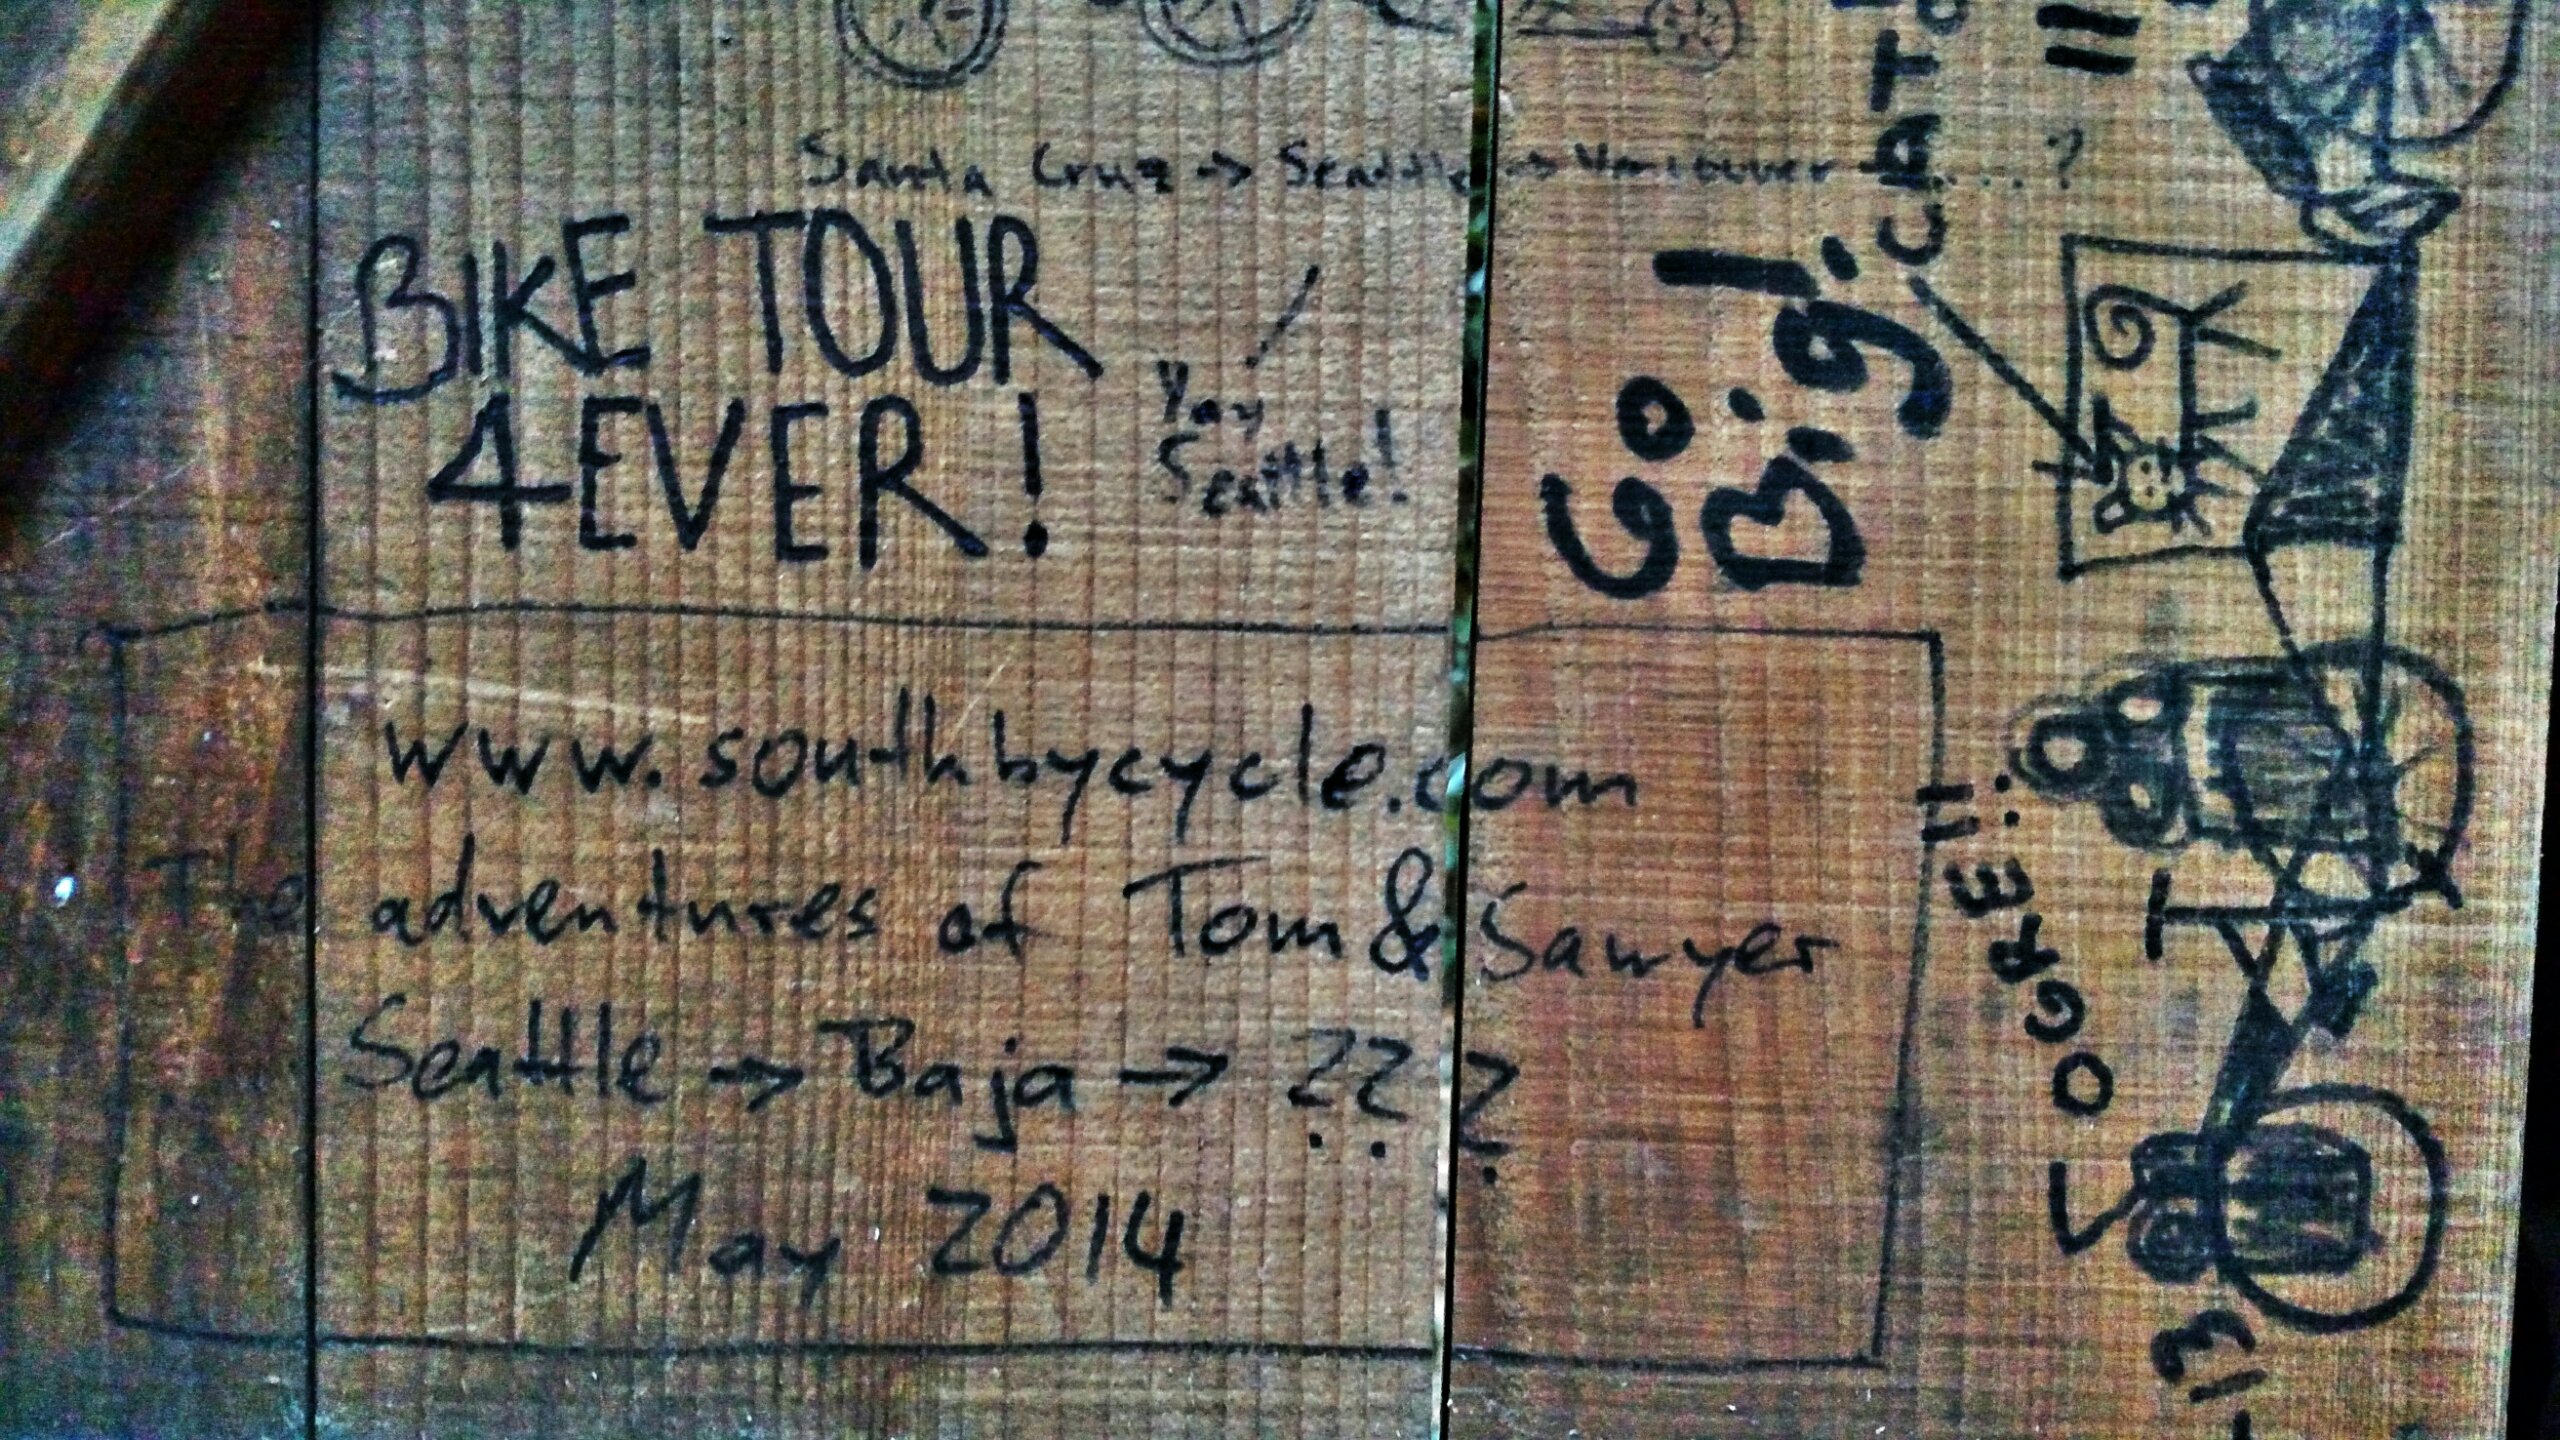 Santa Cruz → Seattle → Vancouver → ....?
BIKE TOUR
4EVER!
Yay
Seattle!
Go
Big!
www.southbycycle.com
The adventures of Tom & Sawyer
Seattle → Baja → ???
May 2014